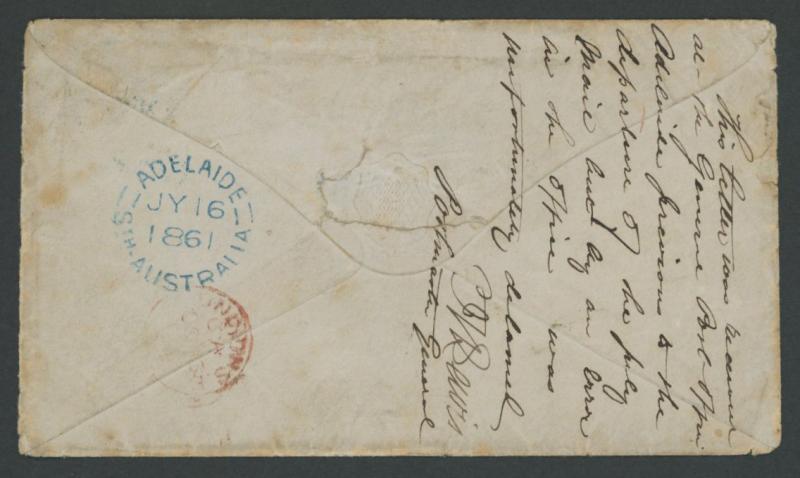 This letter was received
at the General Post Office
Adelaide previous to the
departure of the July
Mail but by an error
in the office was
unfortunately delayed
Postmaster General
ADELAIDE
JY 16
1861
STH AUSTRALIA